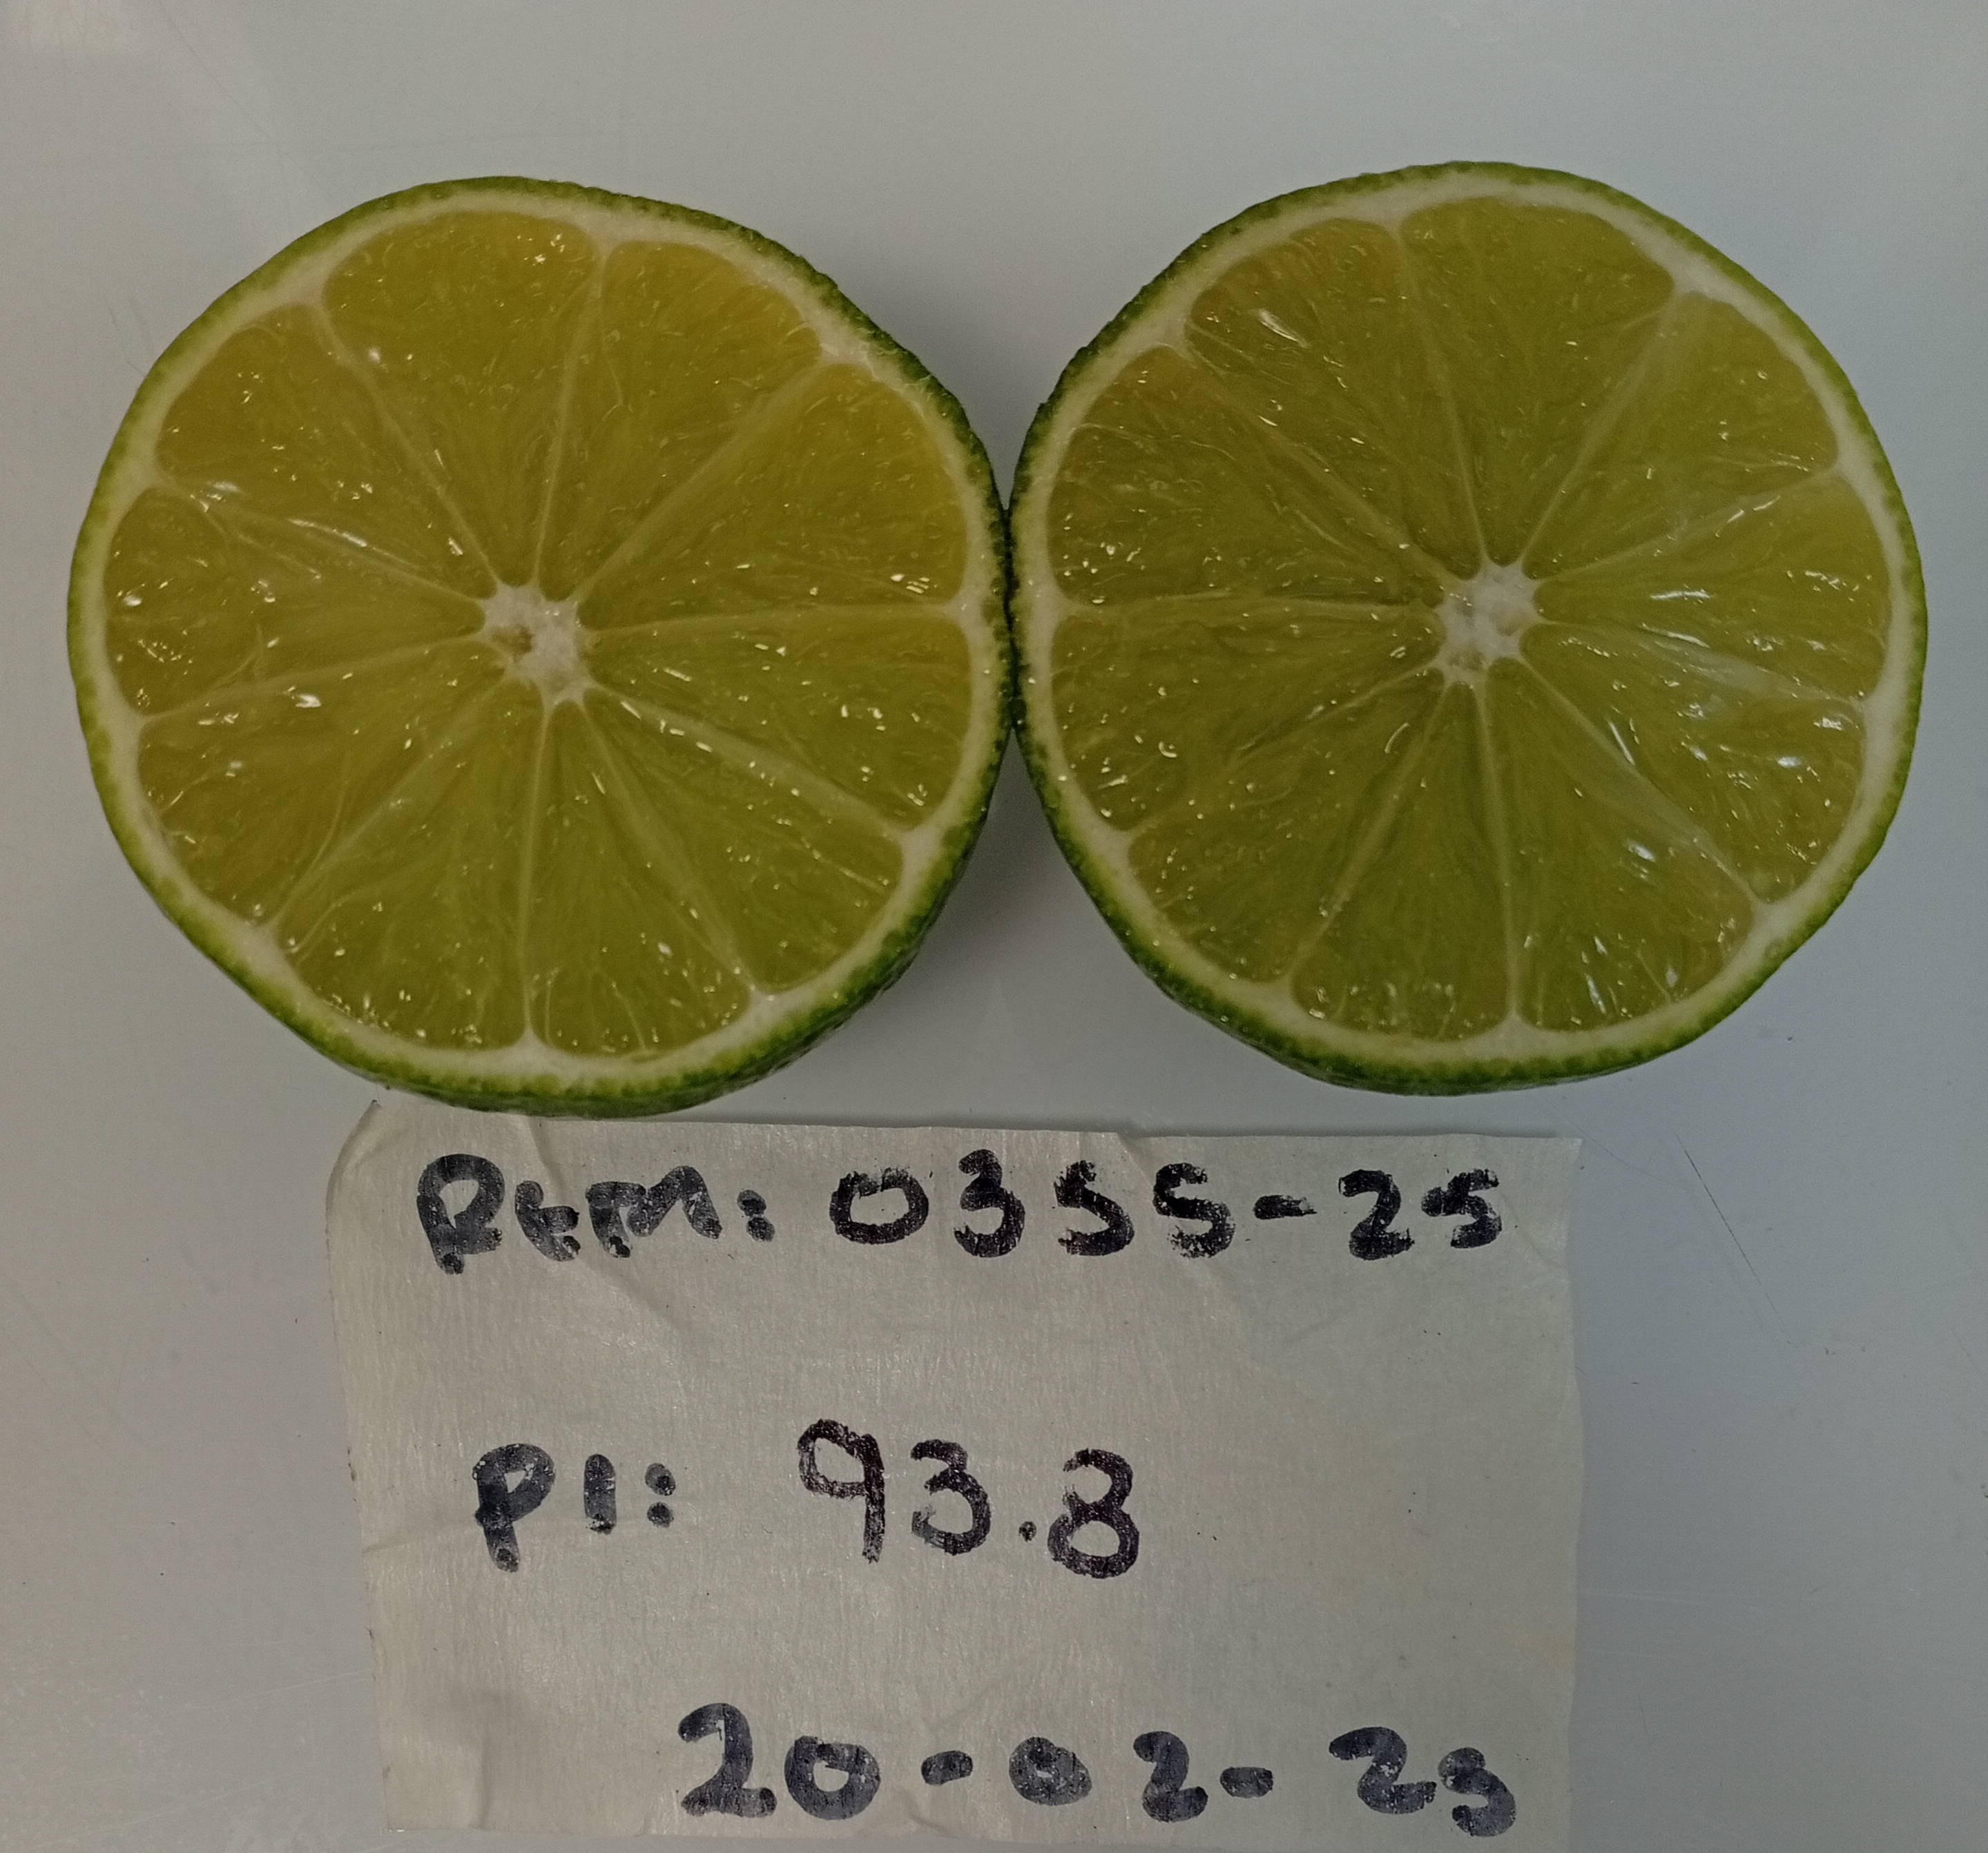 Rem: 0355-25
PI: 93.8
20-02-25